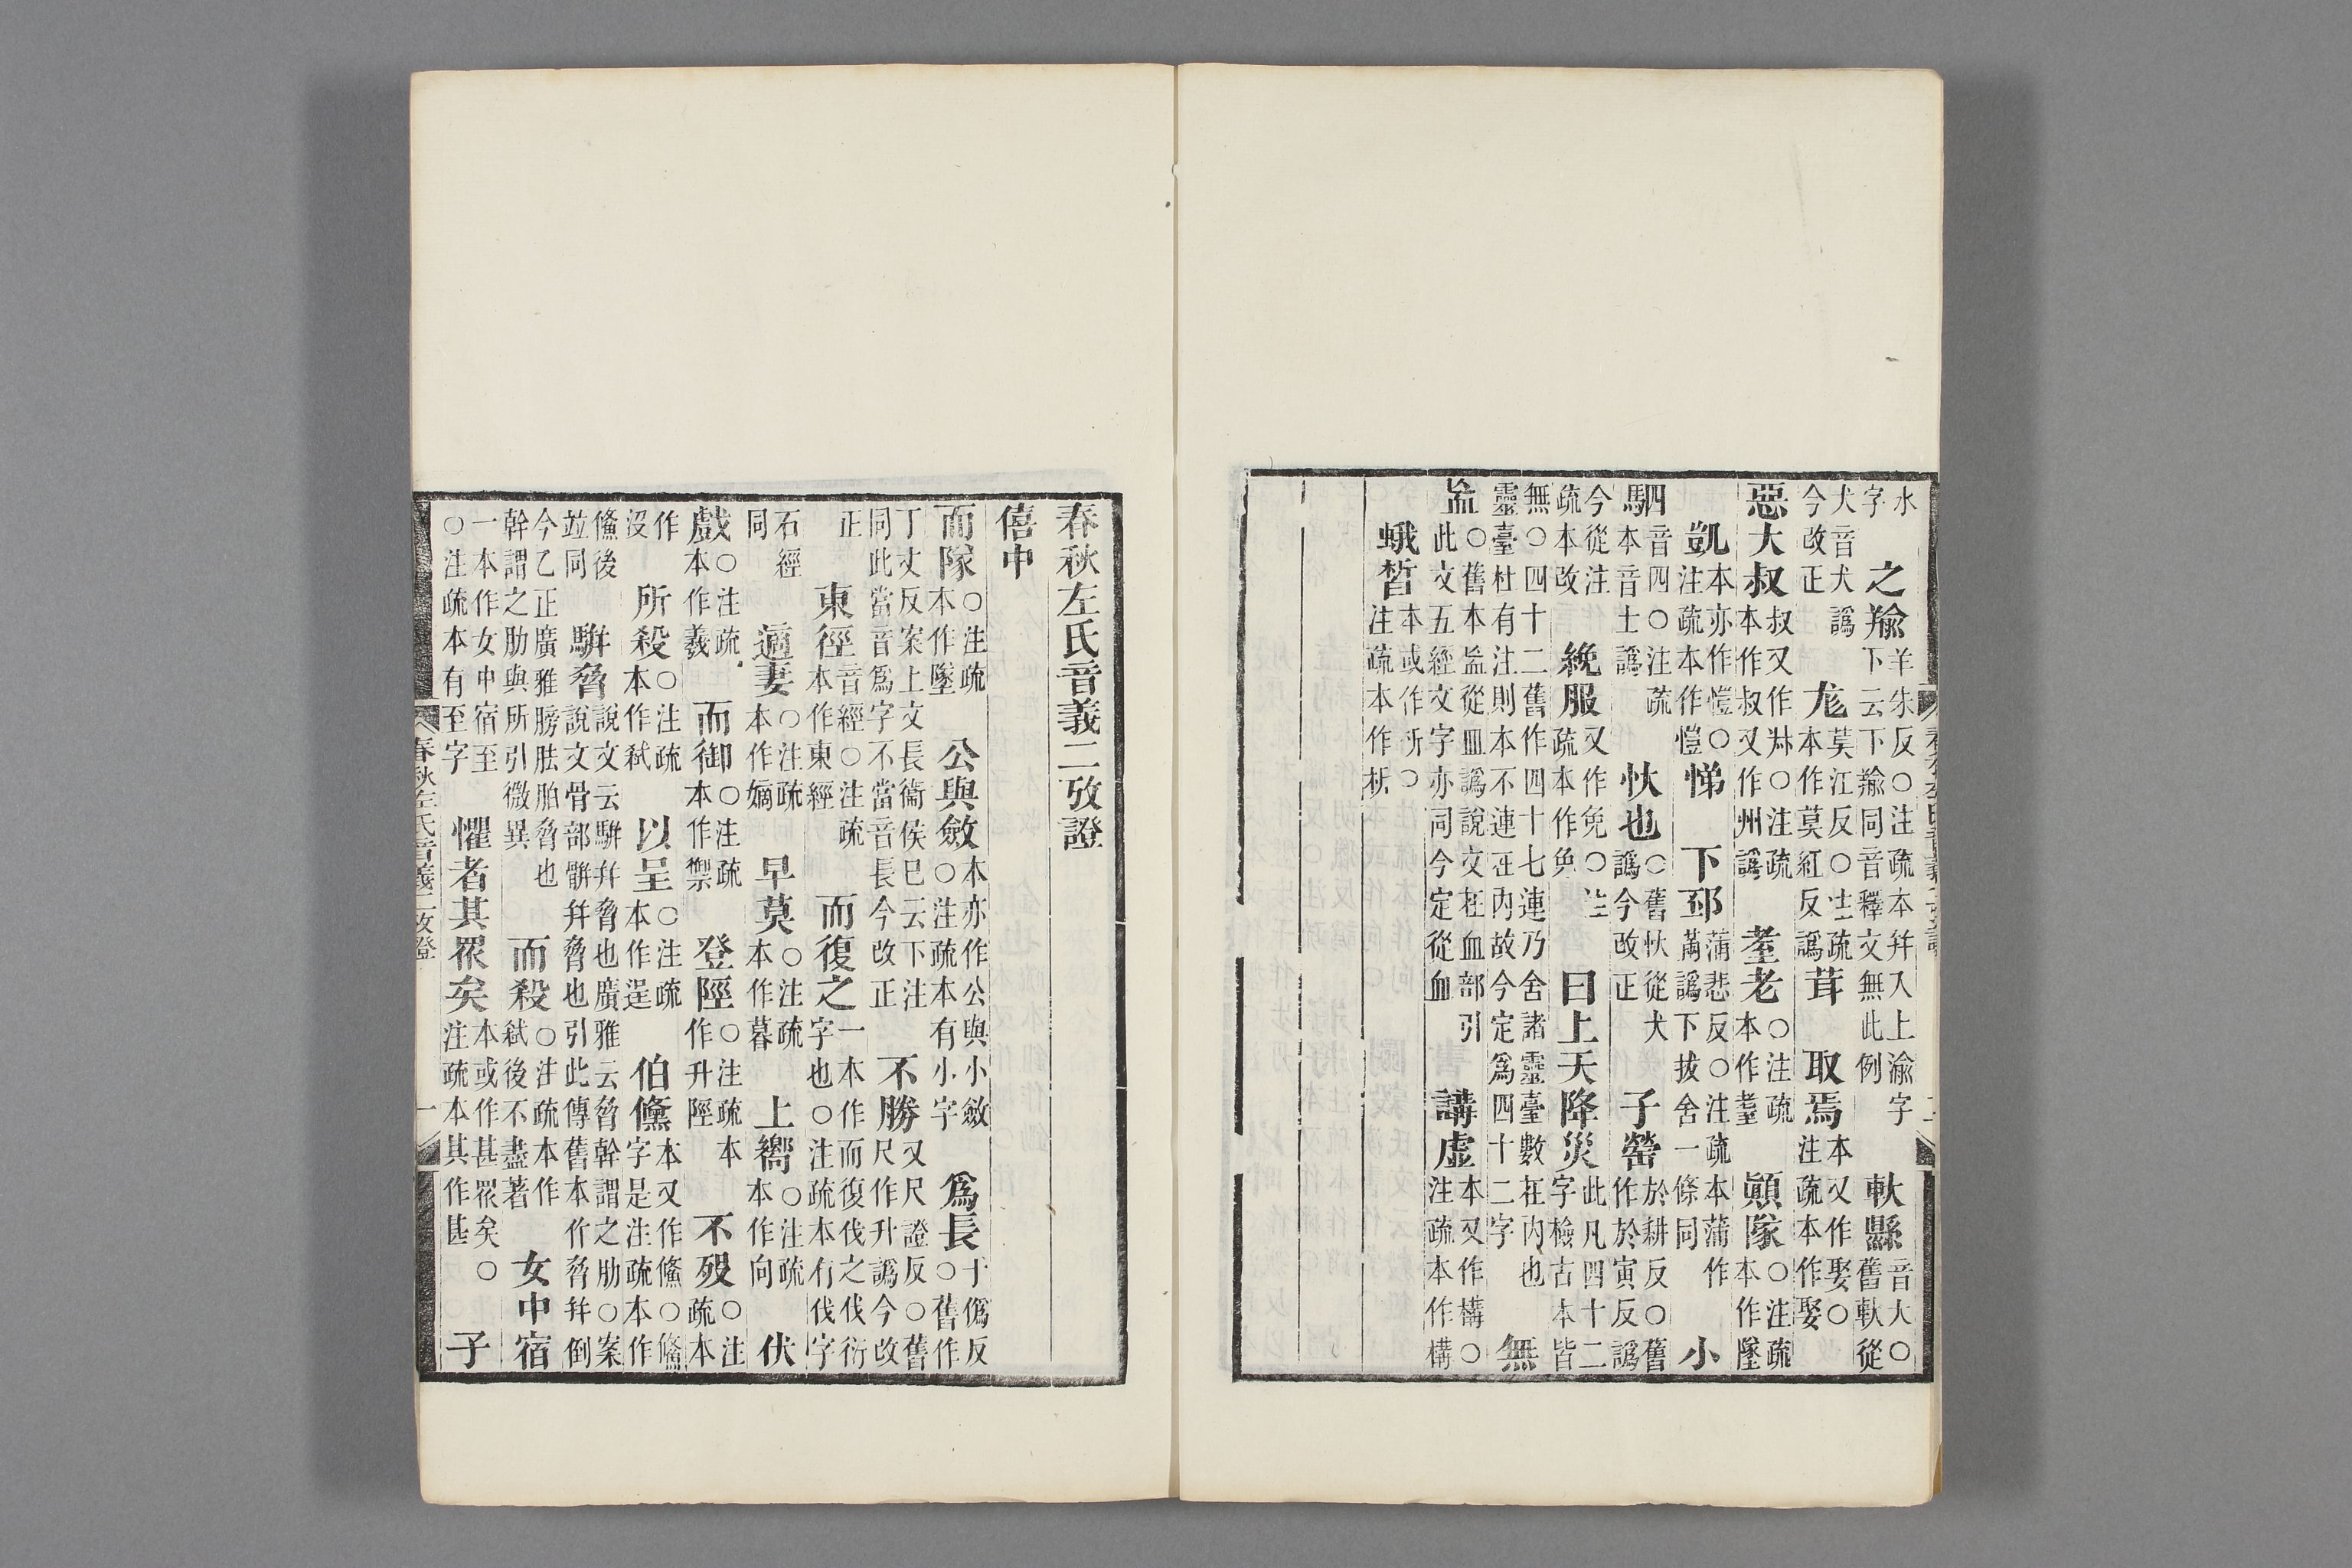 水字之羭羊朱反○注疏本并入上渝字下云下羭同音釋文無此例軑縣音大○舊軑從
犬音犬譌今改正尨莫江反○注疏本作莫紅反譌茸取焉本又作娶○注疏本作娶
惡大叔叔又作○注疏本作叔又作州譌耊老○注疏本作耋顚隊○注疏本作墜
凱本亦作愷○注疏本作愷悌下邳蒲悲反○注疏本蒲作萳譌下拔舍一條同小
駟音四○注疏本音士譌忕也○舊忕從犬譌今改正子罃於耕反○舊作於寅反譌
今從注疏本改絻服又作免○注疏本作免曰上天降災此凡四十二字檢古本皆
無○四十二舊作四十七連乃舍諸靈臺數在內也靈臺杜有注則本不連在內故今定爲四十二字無
衁○舊本衁從皿譌說文在血部引此文五經文字亦同今定從血講虛本又作構○注疏本作構
蛾晳本或作析○注疏本作析
春秋左氏音義二攷證
僖中
而隊○注疏本作墜公與斂本亦作公與小斂○注疏本有小字爲長于僞反○舊作
丁丈反案上文長衞侯已云下注同此當音爲字不當音長今改正不勝又尺證反○舊尺作升譌今改
正東徑音經○注疏本作東經而復之一本作而復伐之伐衍字也○注疏本有伐字
石經同適妻○注疏本作嫡早莫○注疏本作暮上嚮○注疏本作向伏
戲○注疏本作羲而御○注疏本作禦登陘○注疏本作升陘不歿○注疏本
作沒所殺○注疏本作弒以呈○注疏本作逞伯儵本又作鯈○儵字是注疏本作
鯈後竝同騈脅說文云騈并脅也廣雅云脅幹謂之肋○案說文骨部骿并脅也引此傳舊本作脅并倒
今乙正廣雅膀胠胉脅也幹謂之肋與所引微異而殺○注疏本作弒後不盡著女中宿
一本作女中宿至○注疏本有至字懼者其衆矣本或作甚衆矣○注疏本其作甚子
春秋左氏音義二攷證 一